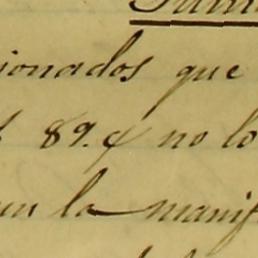 ionados que
89. y no lo
la manif